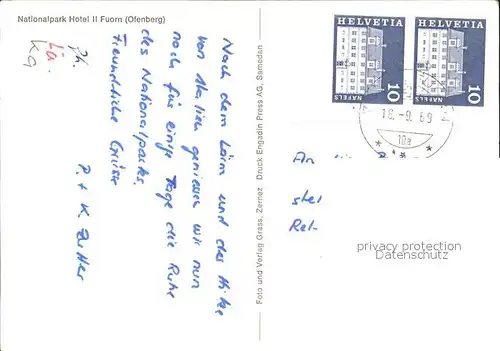 Nationalpark Hotel Il Fuorn (Ofenberg)
Ph.
La.
Kg
Nach dem Lärm und der Hitze
von Italien geniessen wir nun
noch für einige Tage die Ruhe
des Nationalparks.
Freundliche Grüsse
P. + K.
Foto und Verlag Grass, Zernez Druck Engadin Press AG, Samedan
HELVETIA
NÄFELS
10
HELVETIA
NÄFELS
10
18.-9. 69
10a
An
privacy protection
Datenschutz